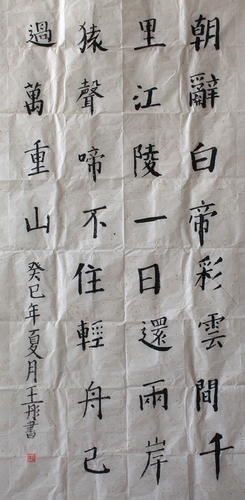 朝辭白帝彩雲間千
里江陵一日還雨岸
猿聲啼不住輕舟已
過萬重山
癸巳年夏月王彤書